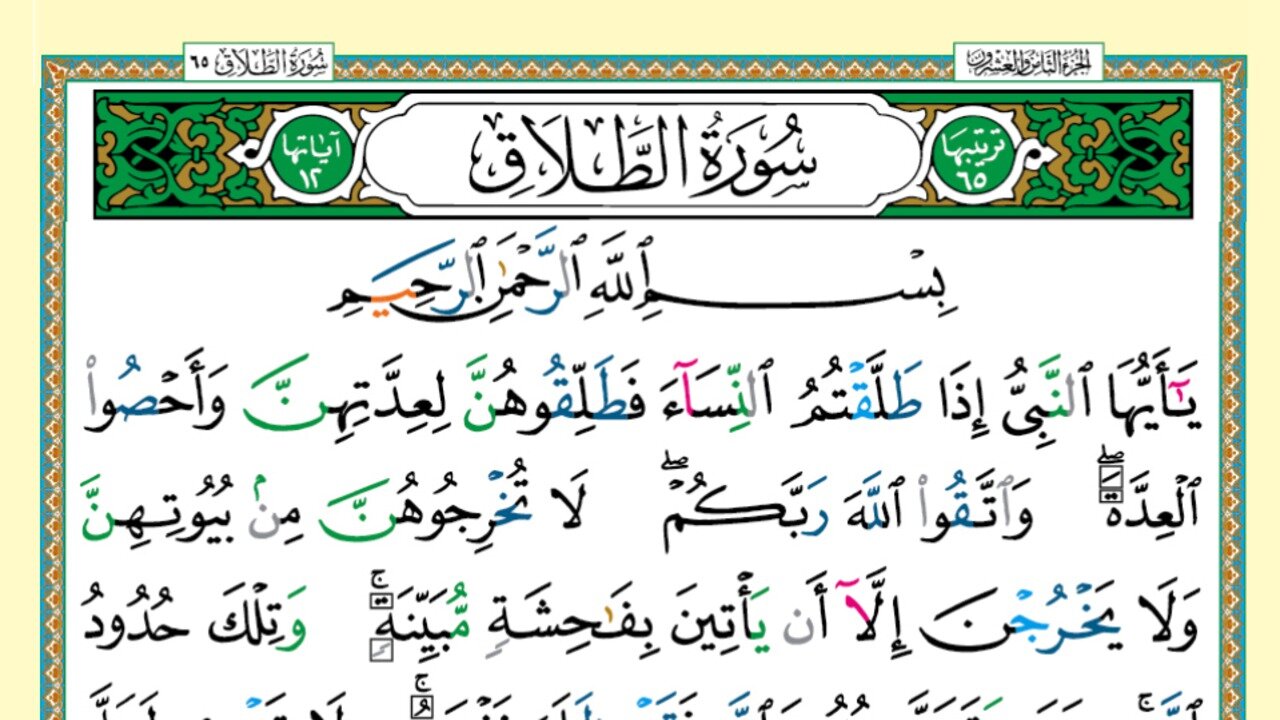 الجزء الثامن والعشرون
سُورَةُ الطَّلَاقِ ٦٥
ترتيبها ٦٥
سُورَةُ الطَّلَاقِ
آياتها ١٢
بِسْمِ ٱللَّهِ ٱلرَّحْمَٰنِ ٱلرَّحِيمِ
يَٰٓأَيُّهَا ٱلنَّبِىُّ إِذَا طَلَّقْتُمُ ٱلنِّسَآءَ فَطَلِّقُوهُنَّ لِعِدَّتِهِنَّ وَأَحْصُوا۟
ٱلْعِدَّةَ ۖ وَٱتَّقُوا۟ ٱللَّهَ رَبَّكُمْ ۖ لَا تُخْرِجُوهُنَّ مِنۢ بُيُوتِهِنَّ
وَلَا يَخْرُجْنَ إِلَّآ أَن يَأْتِينَ بِفَٰحِشَةٍ مُّبَيِّنَةٍ ۚ وَتِلْكَ حُدُودُ